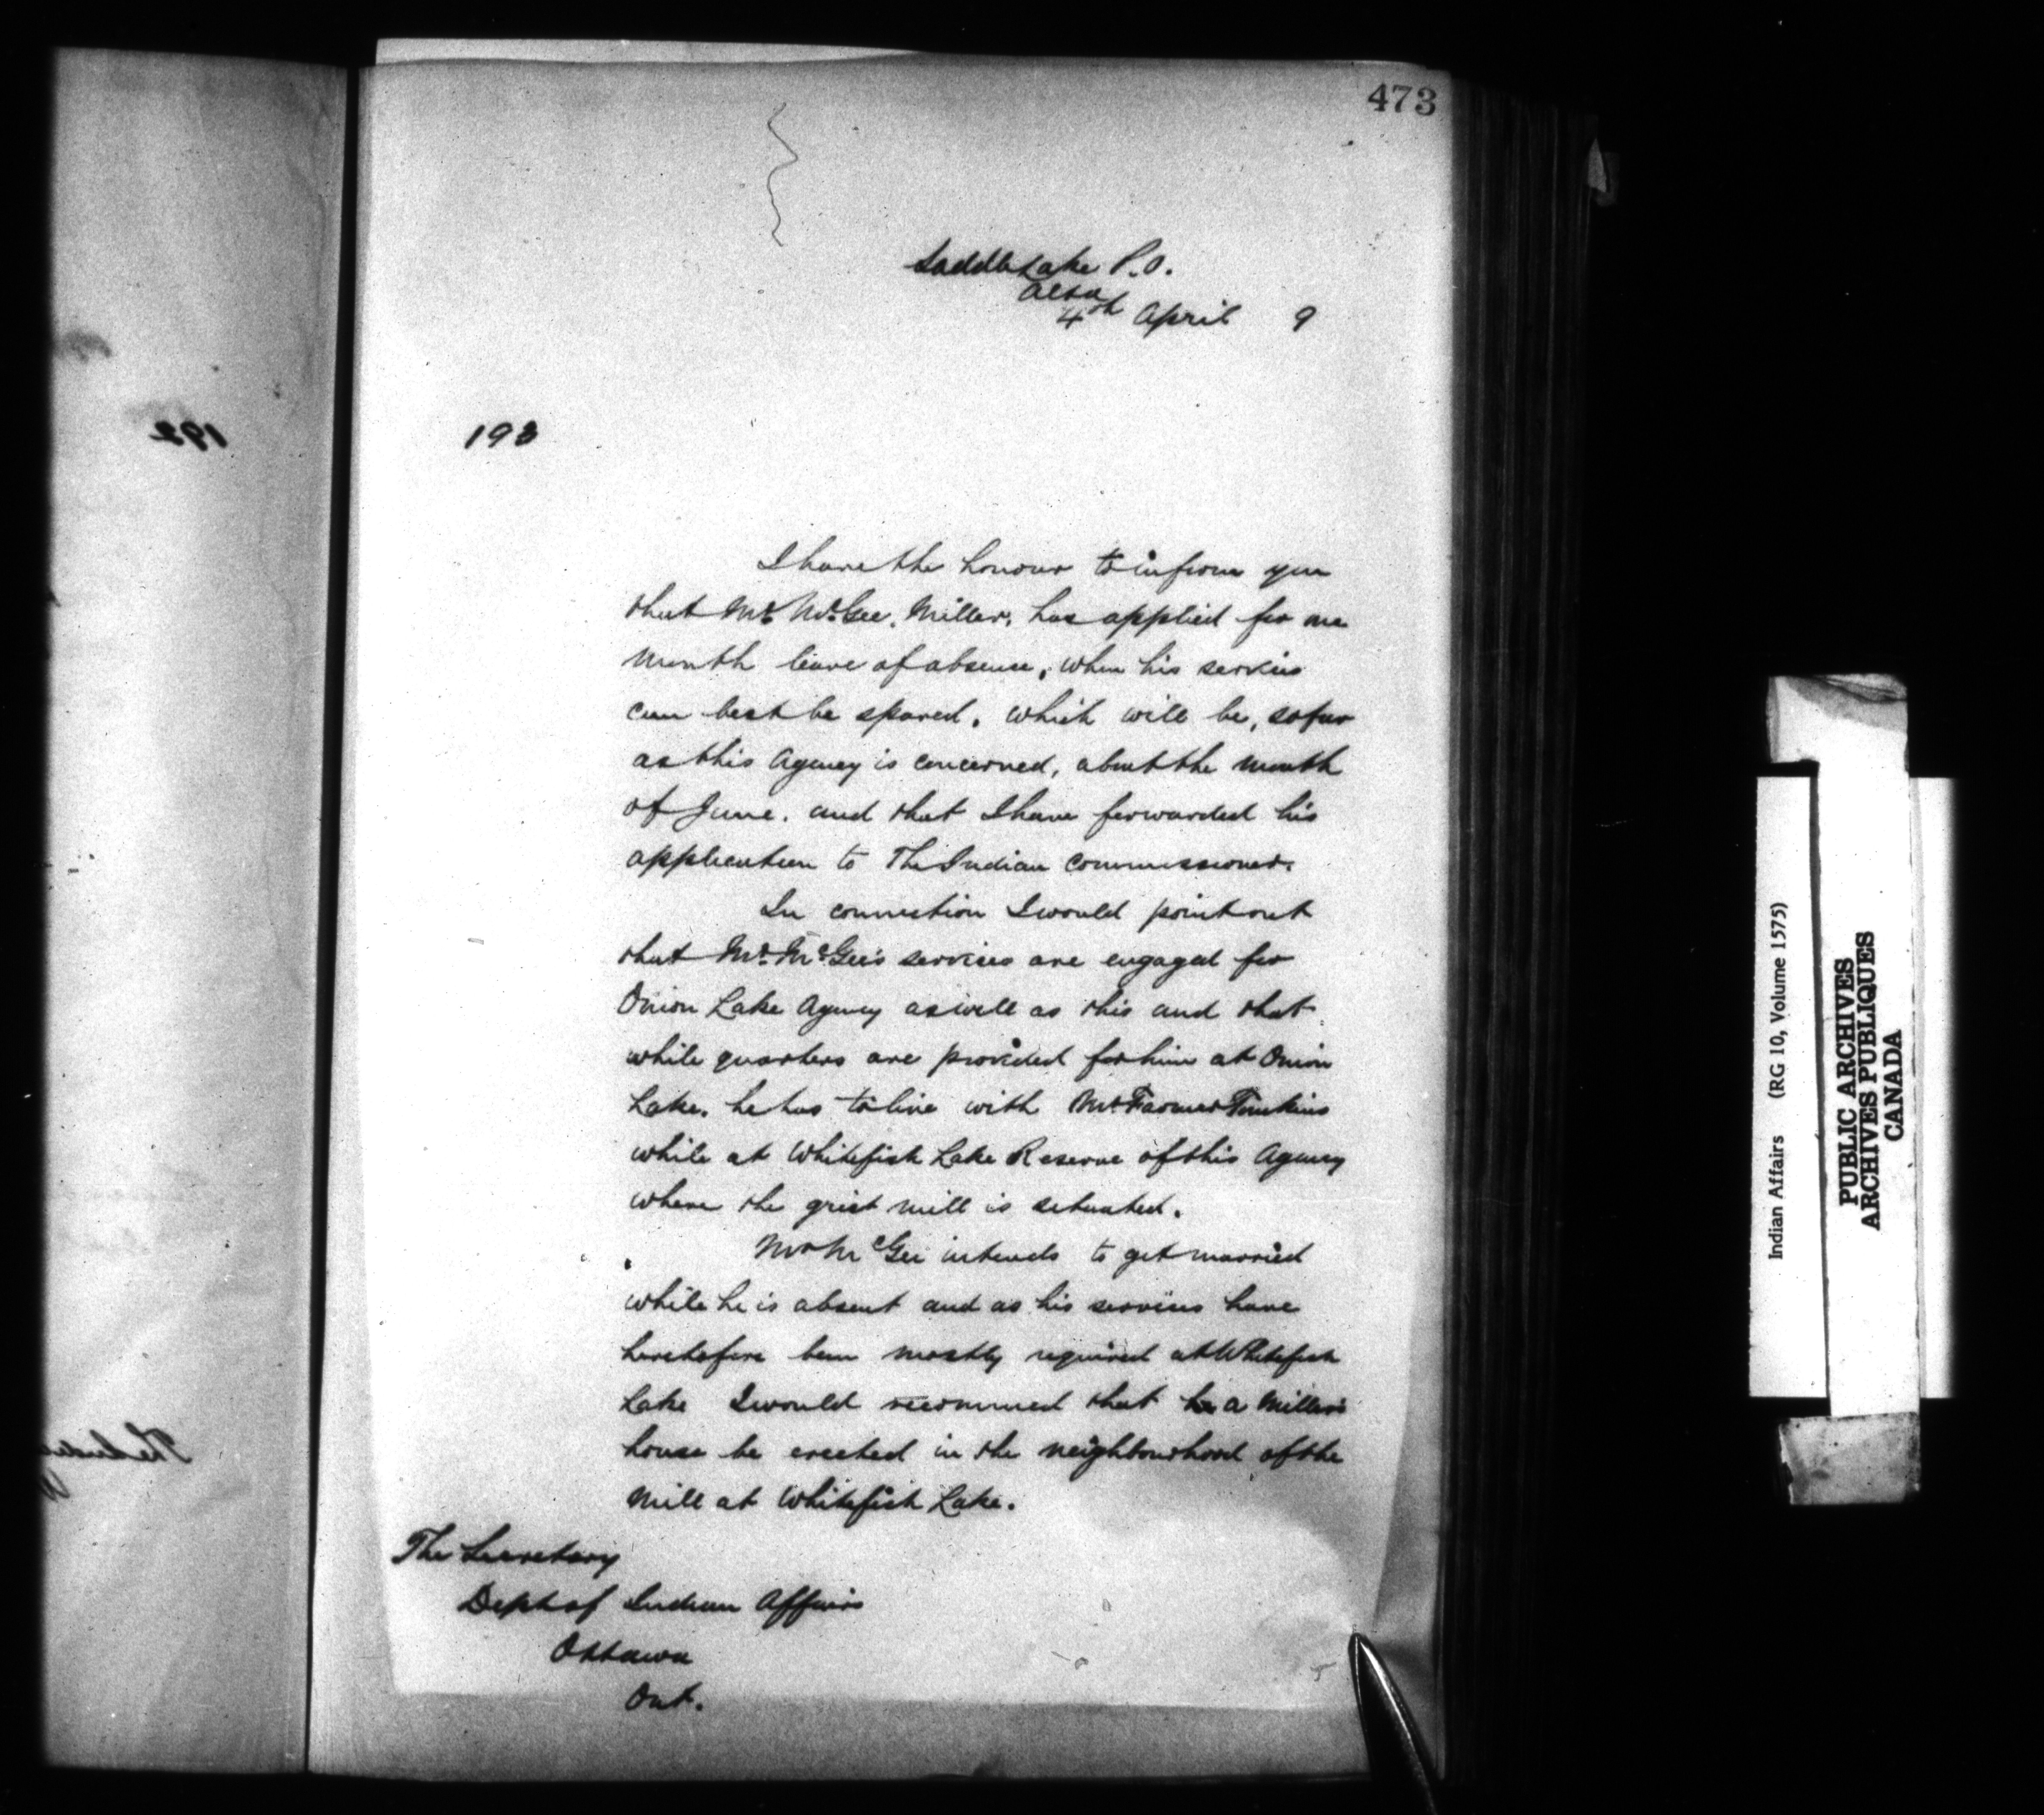 473
Saddle Lake P.O.
Alta
4th April 9
193
I have the honour to inform you
that Mr. McGee, Miller, has applied for one
month leave of absence, when his services
can best be spared, which will be, so far
as this Agency is concerned, about the month
of June, and that I have forwarded his
application to The Indian Commissioner.
In connection I would point out
that Mr. McGee's services are engaged for
Onion Lake Agency as well as this and that
while quarters are provided for him at Onion
Lake, he has to live with Mr Farmer Tomkins
while at Whitefish Lake Reserve of this Agency
where the grist mill is situated.
Mr McGee intends to get married
while he is absent and as his services have
heretofore been mostly required at Whitefish
Lake I would recommend that a Miller's
house be erected in the neighbourhood of the
Mill at Whitefish Lake.
The Secretary
Dept of Indian Affairs
Ottawa
Ont.
192
Indian Affairs (RG 10, Volume 1575)
PUBLIC ARCHIVES
ARCHIVES PUBLIQUES
CANADA